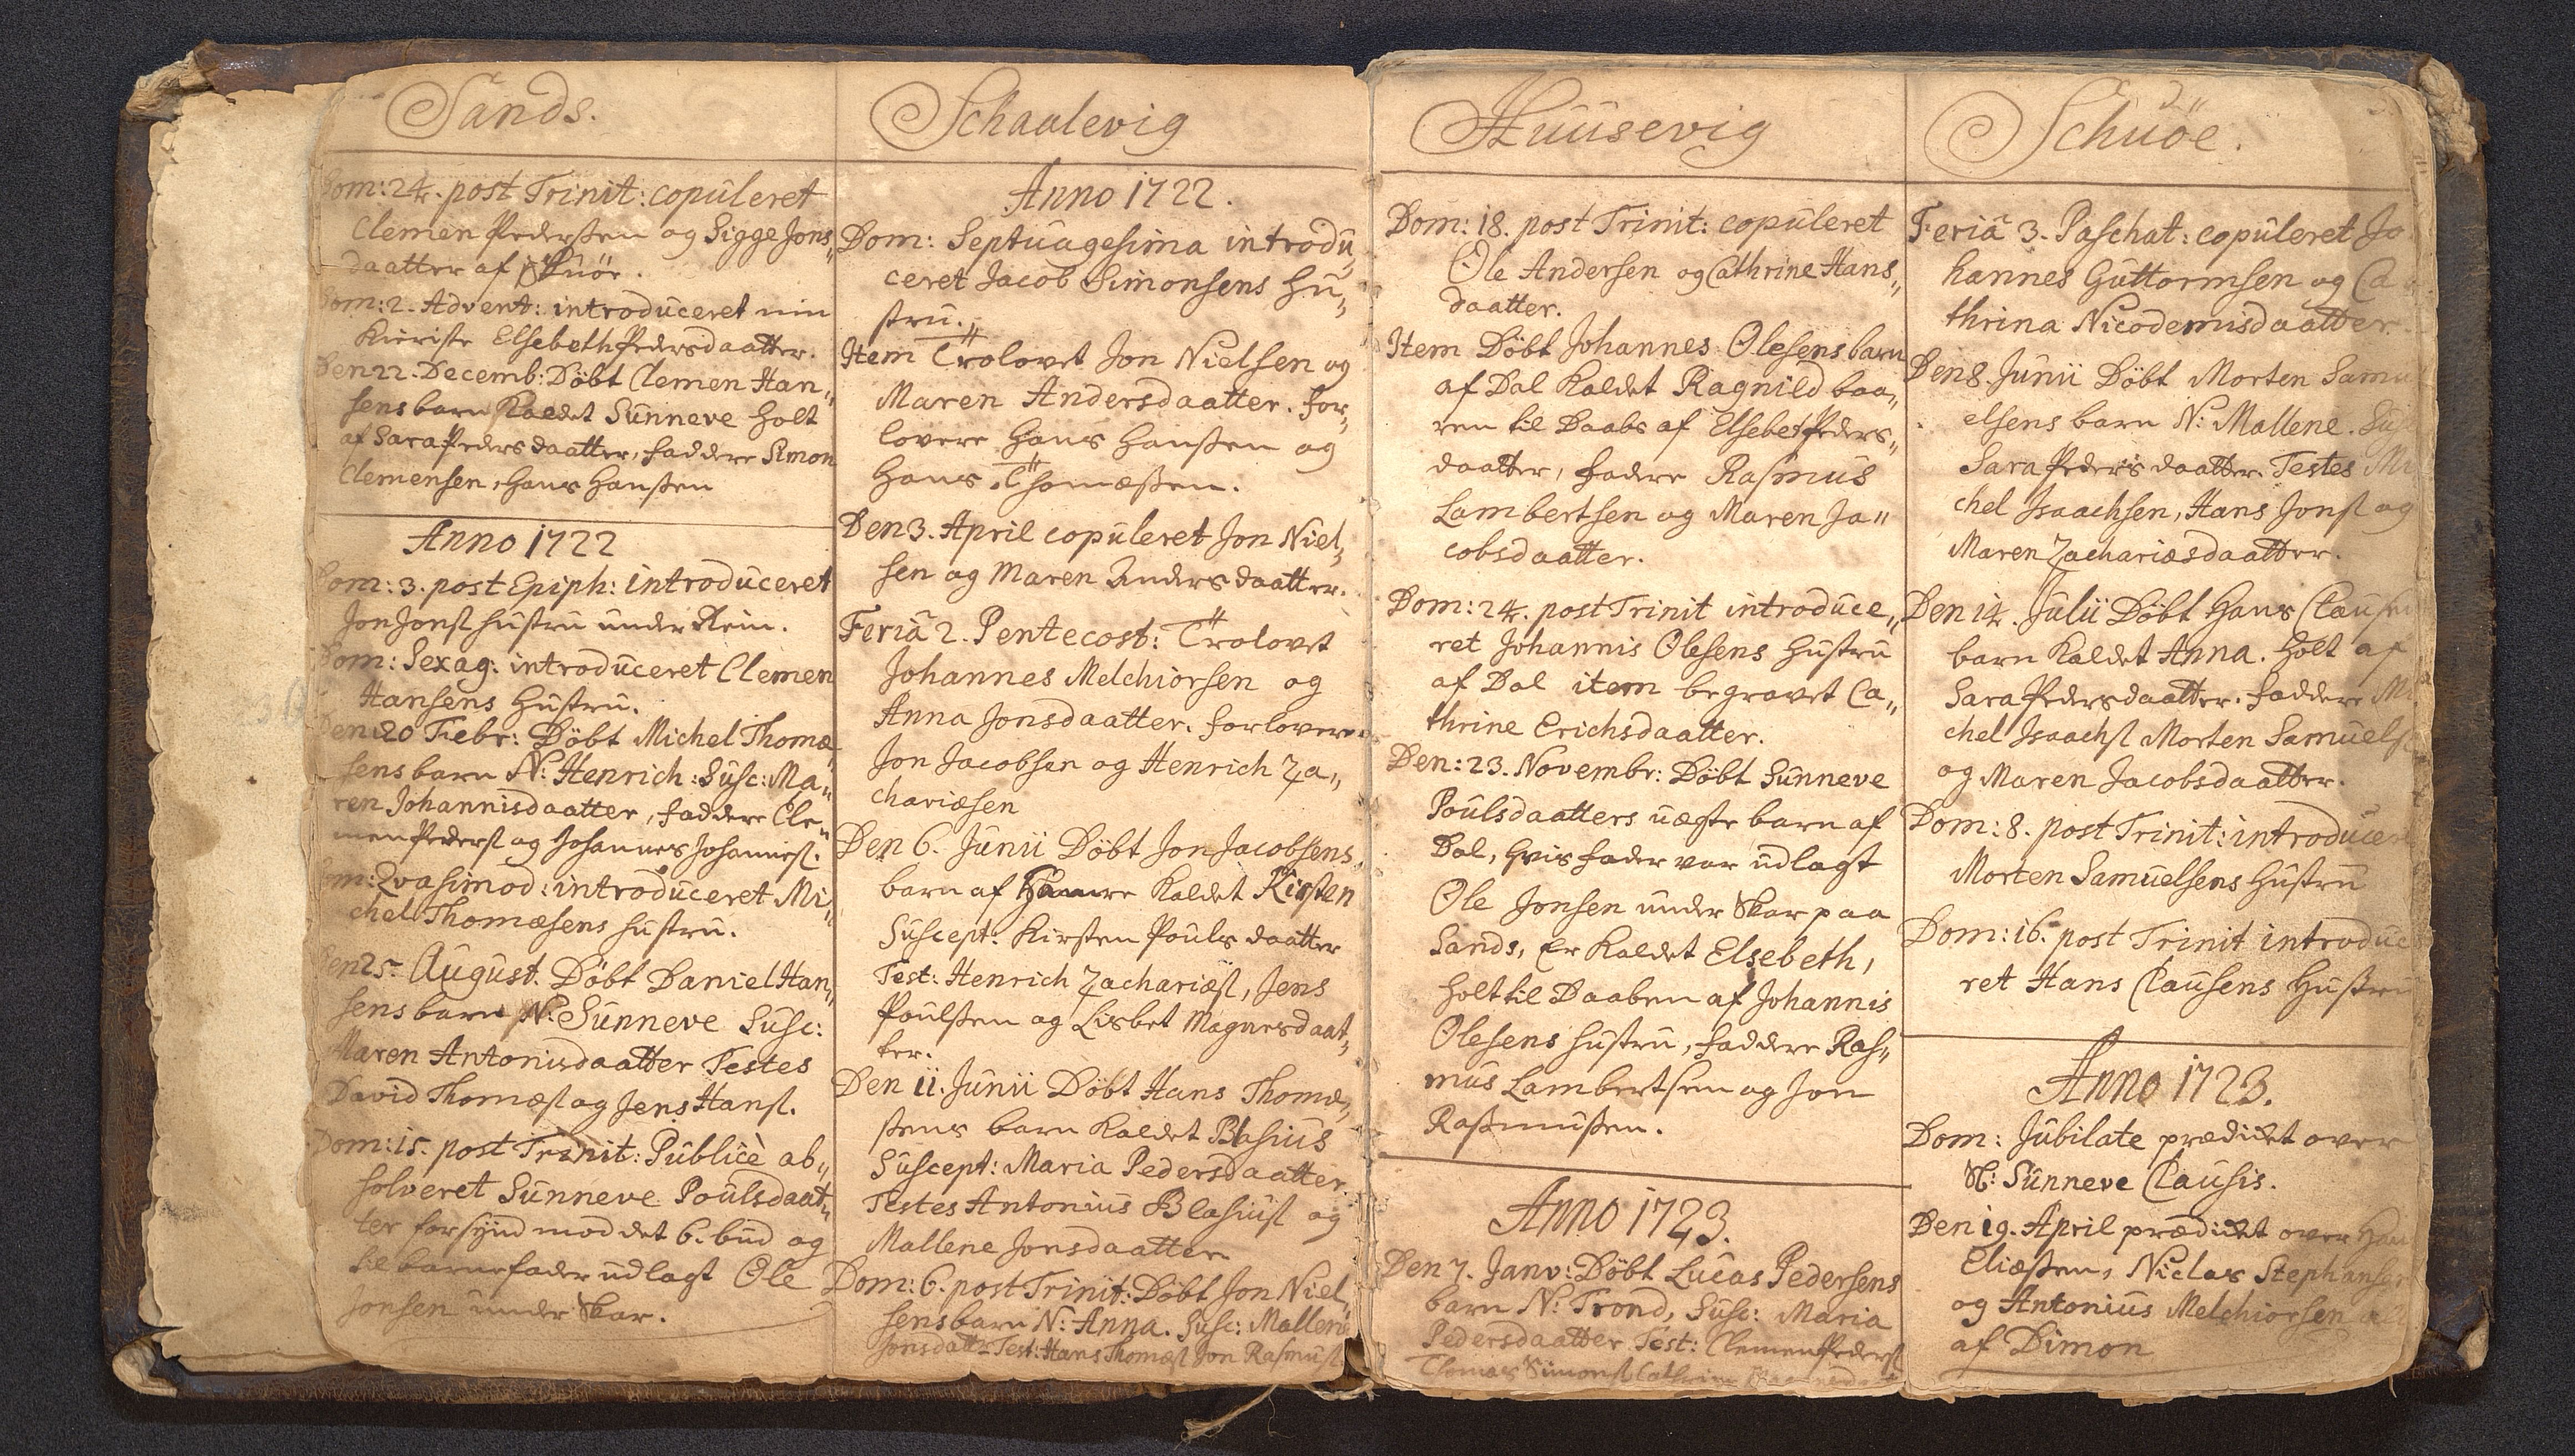 Sands.
Dom: 24. post Trinit: copuleret
Clemen Pedersen og Sigge Jons„
daatter af Skuöe.
Dom: 2. Advent: introduceret min
Kieriste Elsebeth Pedersdaatter.
Den 22. Decemb: Döbt Clemen Han„
sens barn Kaldet Sunneve holt
af Sara Pedersdaatter, faddere Simon
Clemensen, Hans Hanßen
Anno 1722
Dom: 3. post Epiph: introduceret
Jon Jonsß hustru under Rein.
Dom: Sexag: introduceret Clemen
Hansens Hustru.
Den 20 Febr: Döbt Michel Thomæ„
sens barn N: Henrich: Susc: Ma„
ren Johannisdaatter, faddere Cle„
men Pedersß og Johannes Johannesß.
Dom: Qvasimod: introduceret Mi„
chel Thomæsens hustru.
Den 25. August. Döbt Daniel Han„
sens barn N: Sunneve Susc:
Maren Antonisdaatter Testes
David Thomæsß og Jens Hansß.
Dom: 15. post Trinit: Publicè ab„
solveret Sunneve Poulsdaat„
ter forsynd mod det 6. bud og
til barnefader udlagt Ole
Jonsen under Skar.
Schaalevig
Anno 1722.
Dom: Septuagesima introdu„
ceret Jacob Simonsens Hu„
stru.
Item Trolovet Jon Nielsen og
Maren Andersdaatter. for„
lovere Hans Hanßen og
Hans Thomæßen.
Den 3. April copuleret Jon Niel„
sen og Maren Andersdaatter.
Feriâ 2. Pentecost: Trolovet
Johannes Melchiorsen og
Anna Jonsdaatter. forlovere
Jon Jacobsen og Henrich Za„
chariæsen
Den 6. Junii Döbt Jon Jacobsens
barn af Hamre Kaldet Kirsten
Suscept: Kirsten Pouls daatter
Test: Henrich Zachariæsß, Jens
Poulßen og Lisbet Magnesdaat„
ter.
Den 11. Junii Döbt Hans Thomæ„
ßens barn Kaldet Blasius
Suscept: Maria Pedersdaatter
Testes Antonius Blasiusß og
Mallene Jonsdaatter
Dom: 6. post Trinit: Döbt Jon Niel„
sens barn N: Anna. Susc: Mallene
Jonsdatt: Test: Hans Thomæsß Jon Rasmusß
Huusevig
Dom: 18. post Trinit: copuleret
Ole Andersen og Cathrine Hans„
daatter.
Item Döbt Johannes Olesens barn
af Dal Kaldet Ragnild baa„
ren til Daabs af Elsebet Peders„
daatter, fadere Rasmus
Lambertsen og Maren Ja„
cobsdaatter.
Dom: 24. post Trinit introduce„
ret Johannis Olesens Hustru
af Dal item begravet Ca„
thrine Erichsdaatter.
Den: 23. Novembr: Döbt Sunneve
Poulsdaatters uægte barn af
Dal, hvis fader var udlagt
Ole Jonsen under Skar paa
Sands, Er Kaldet Elsebeth,
holt til Daaben af Johannis
Olesens hustru, faddere Ras„
mus Lambertsen og Jon
Rasmußen.
Anno 1723.
Den 7. Janv: Döbt Lucas Pedersens
barn N: Trond, Susc: Maria
Pedersdaatter Test: Clemen Pedersß
Thomas Simonsß Cathrine
Schuöe.
Feriâ 3. Paschat: copuleret Jo
hannes Guttormsen og Ca
thrina Nicodemisdaatter.
Den 8. Junii Döbt Morten Samu
elsens barn N: Mallene. Susc
Sara Peders daatter. Testes Mi
chel Isaachsen, Hans Jonsß og
Maren Zachariæsdaatter.
Den 14. Julii Döbt Hans Clausen
barn Kaldet Anna. holt af
Sara Pedersdaatter. faddere Mi
chel Isaachsß Morten Samuelsß
og Maren Jacobsdaatter.
Dom: 8. post Trinit: introduceret
Morten Samuelsens Hustru
Dom: 16. post Trinit introduce
ret Hans Clausens Hustru
Anno 1723.
Dom: Jubilate prædiket over
Sl: Sunneve Clausis.
Den 19. April prædiket over Han
Eliæßen, Niclas Stephansen
og Antonius Melchiorsen
af Dimon